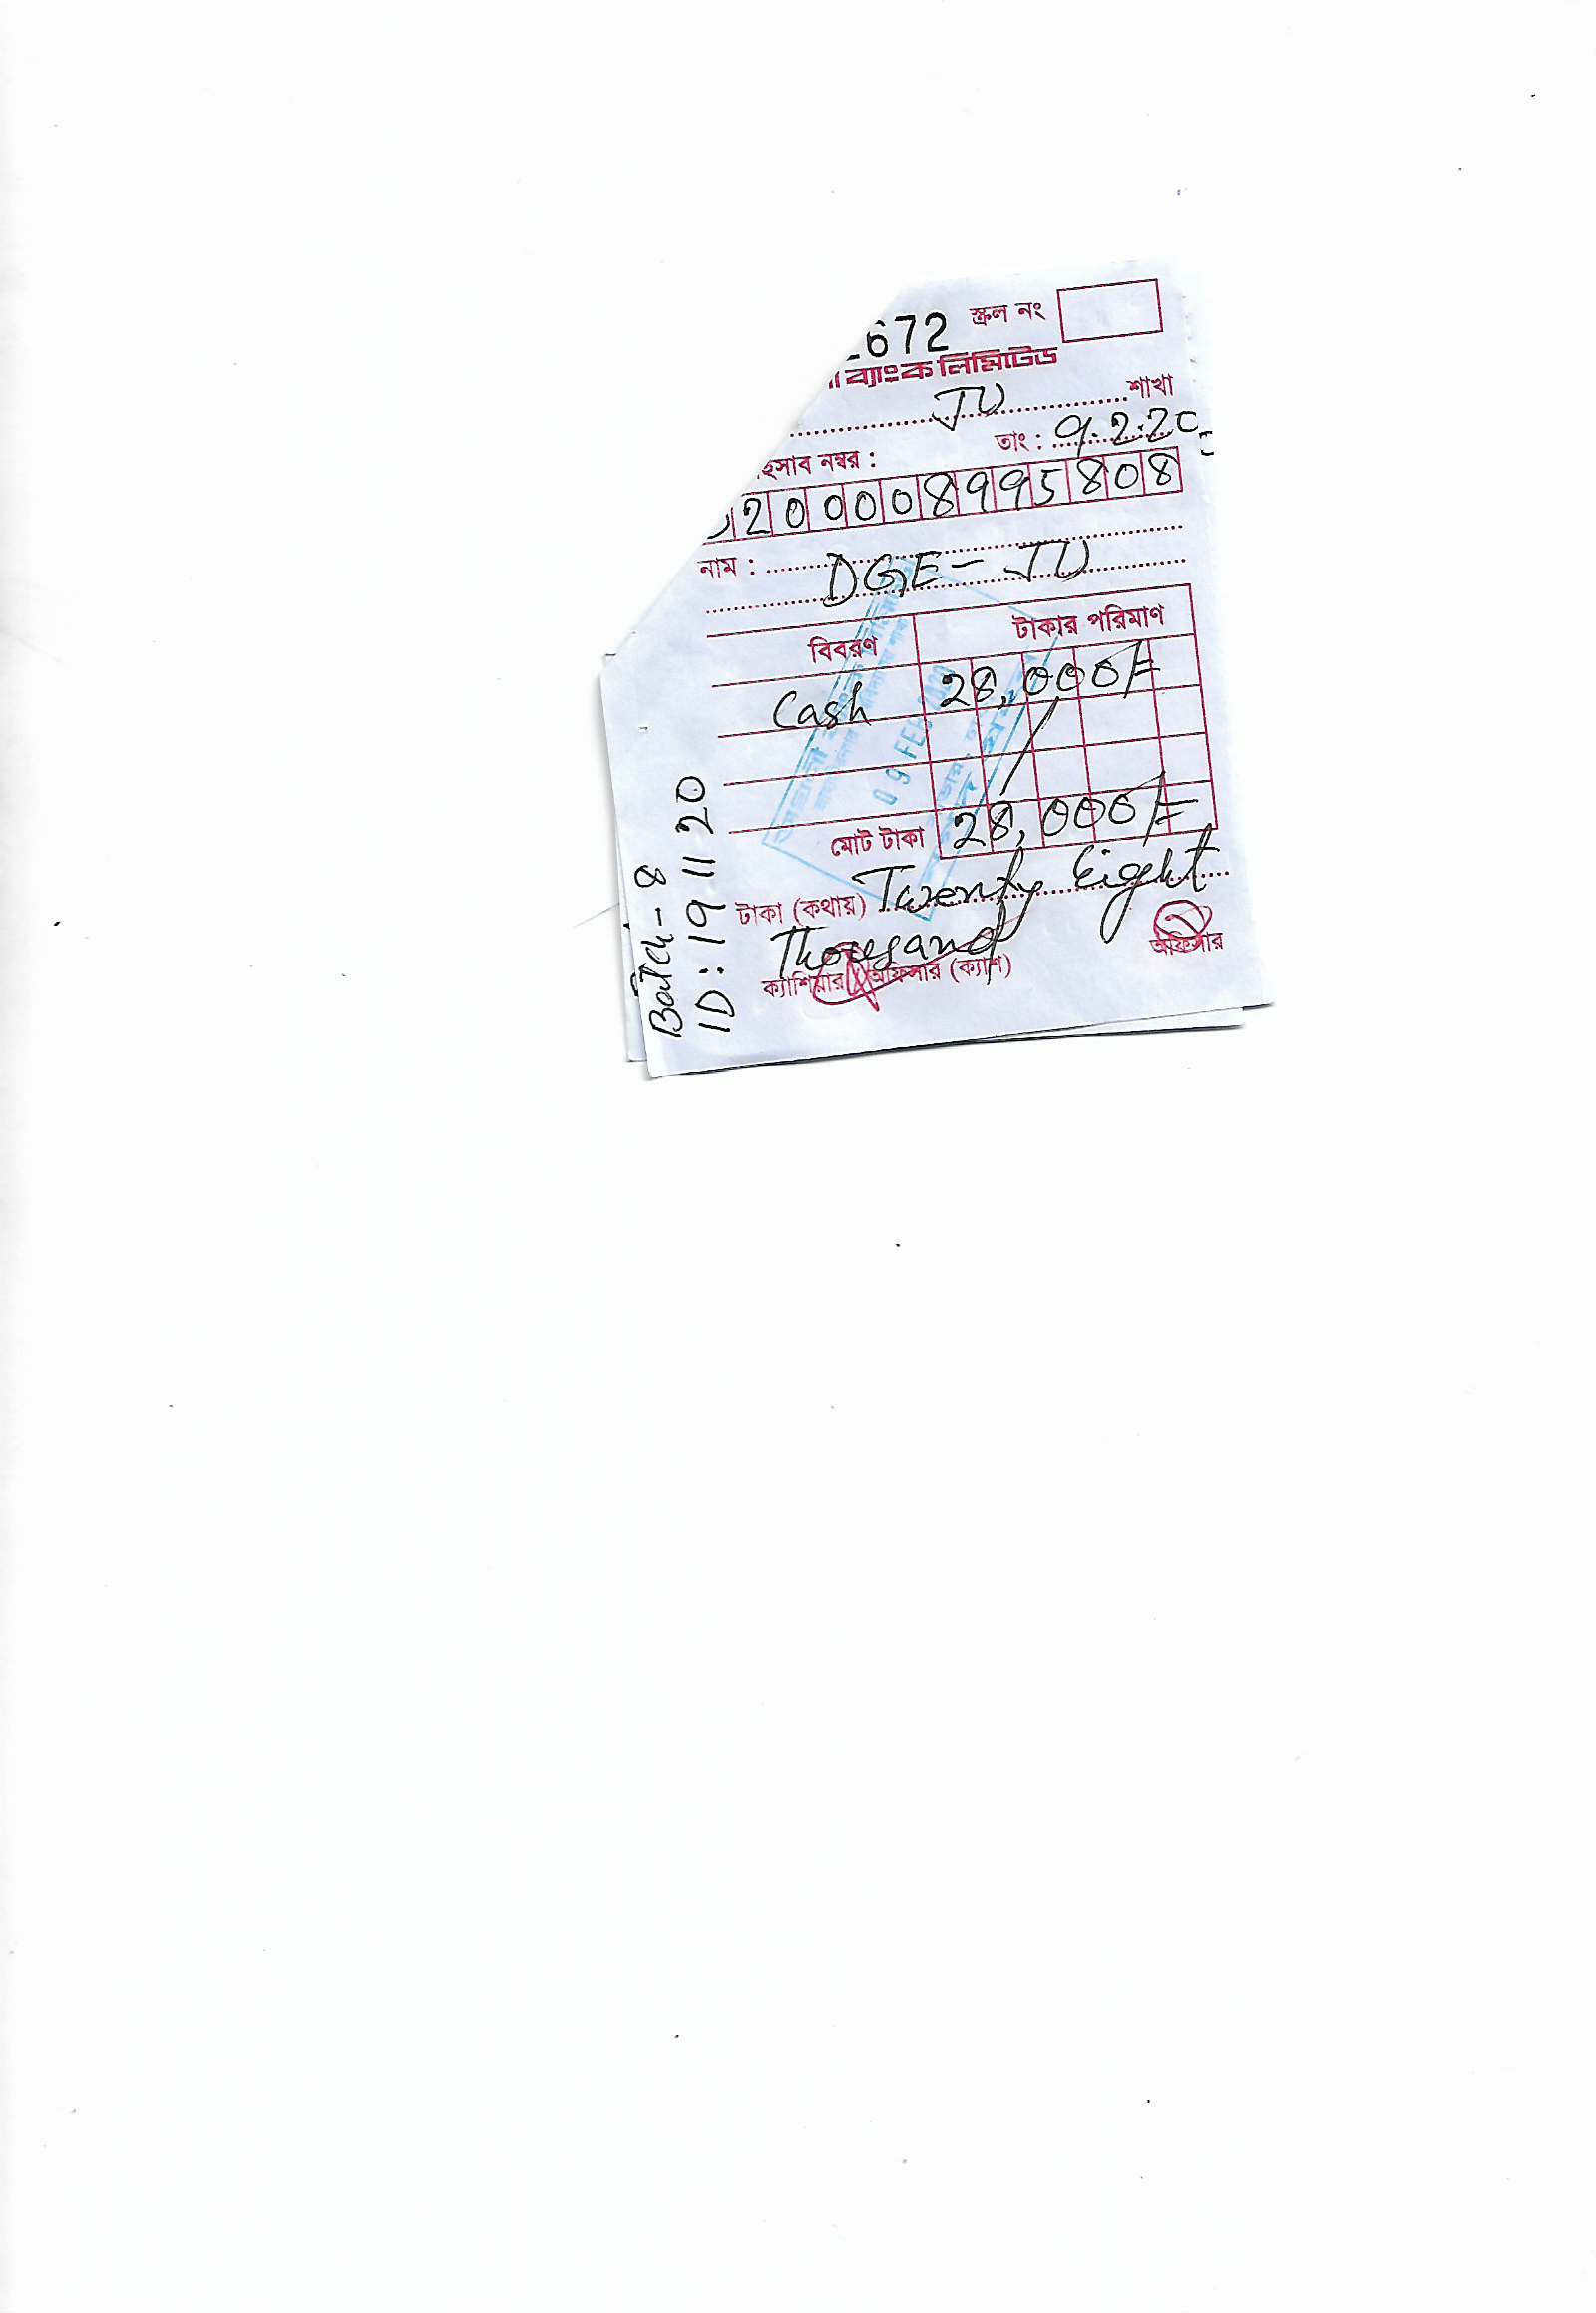 672 স্ক্রল নং
ব্যাংক লিমিটেড
JU শাখা
তাং : 9.2.20
হিসাব নম্বর :
200008995808
নাম : DGE - JU
বিবরণ টাকার পরিমাণ
Cash 28,000/=
09 FEB
মোট টাকা 28,000/=
টাকা (কথায়) Twenty Eight
Thousand
ক্যাশিয়ার অফিসার (ক্যাশ) অফিসার
Batch - 8
ID : 191120